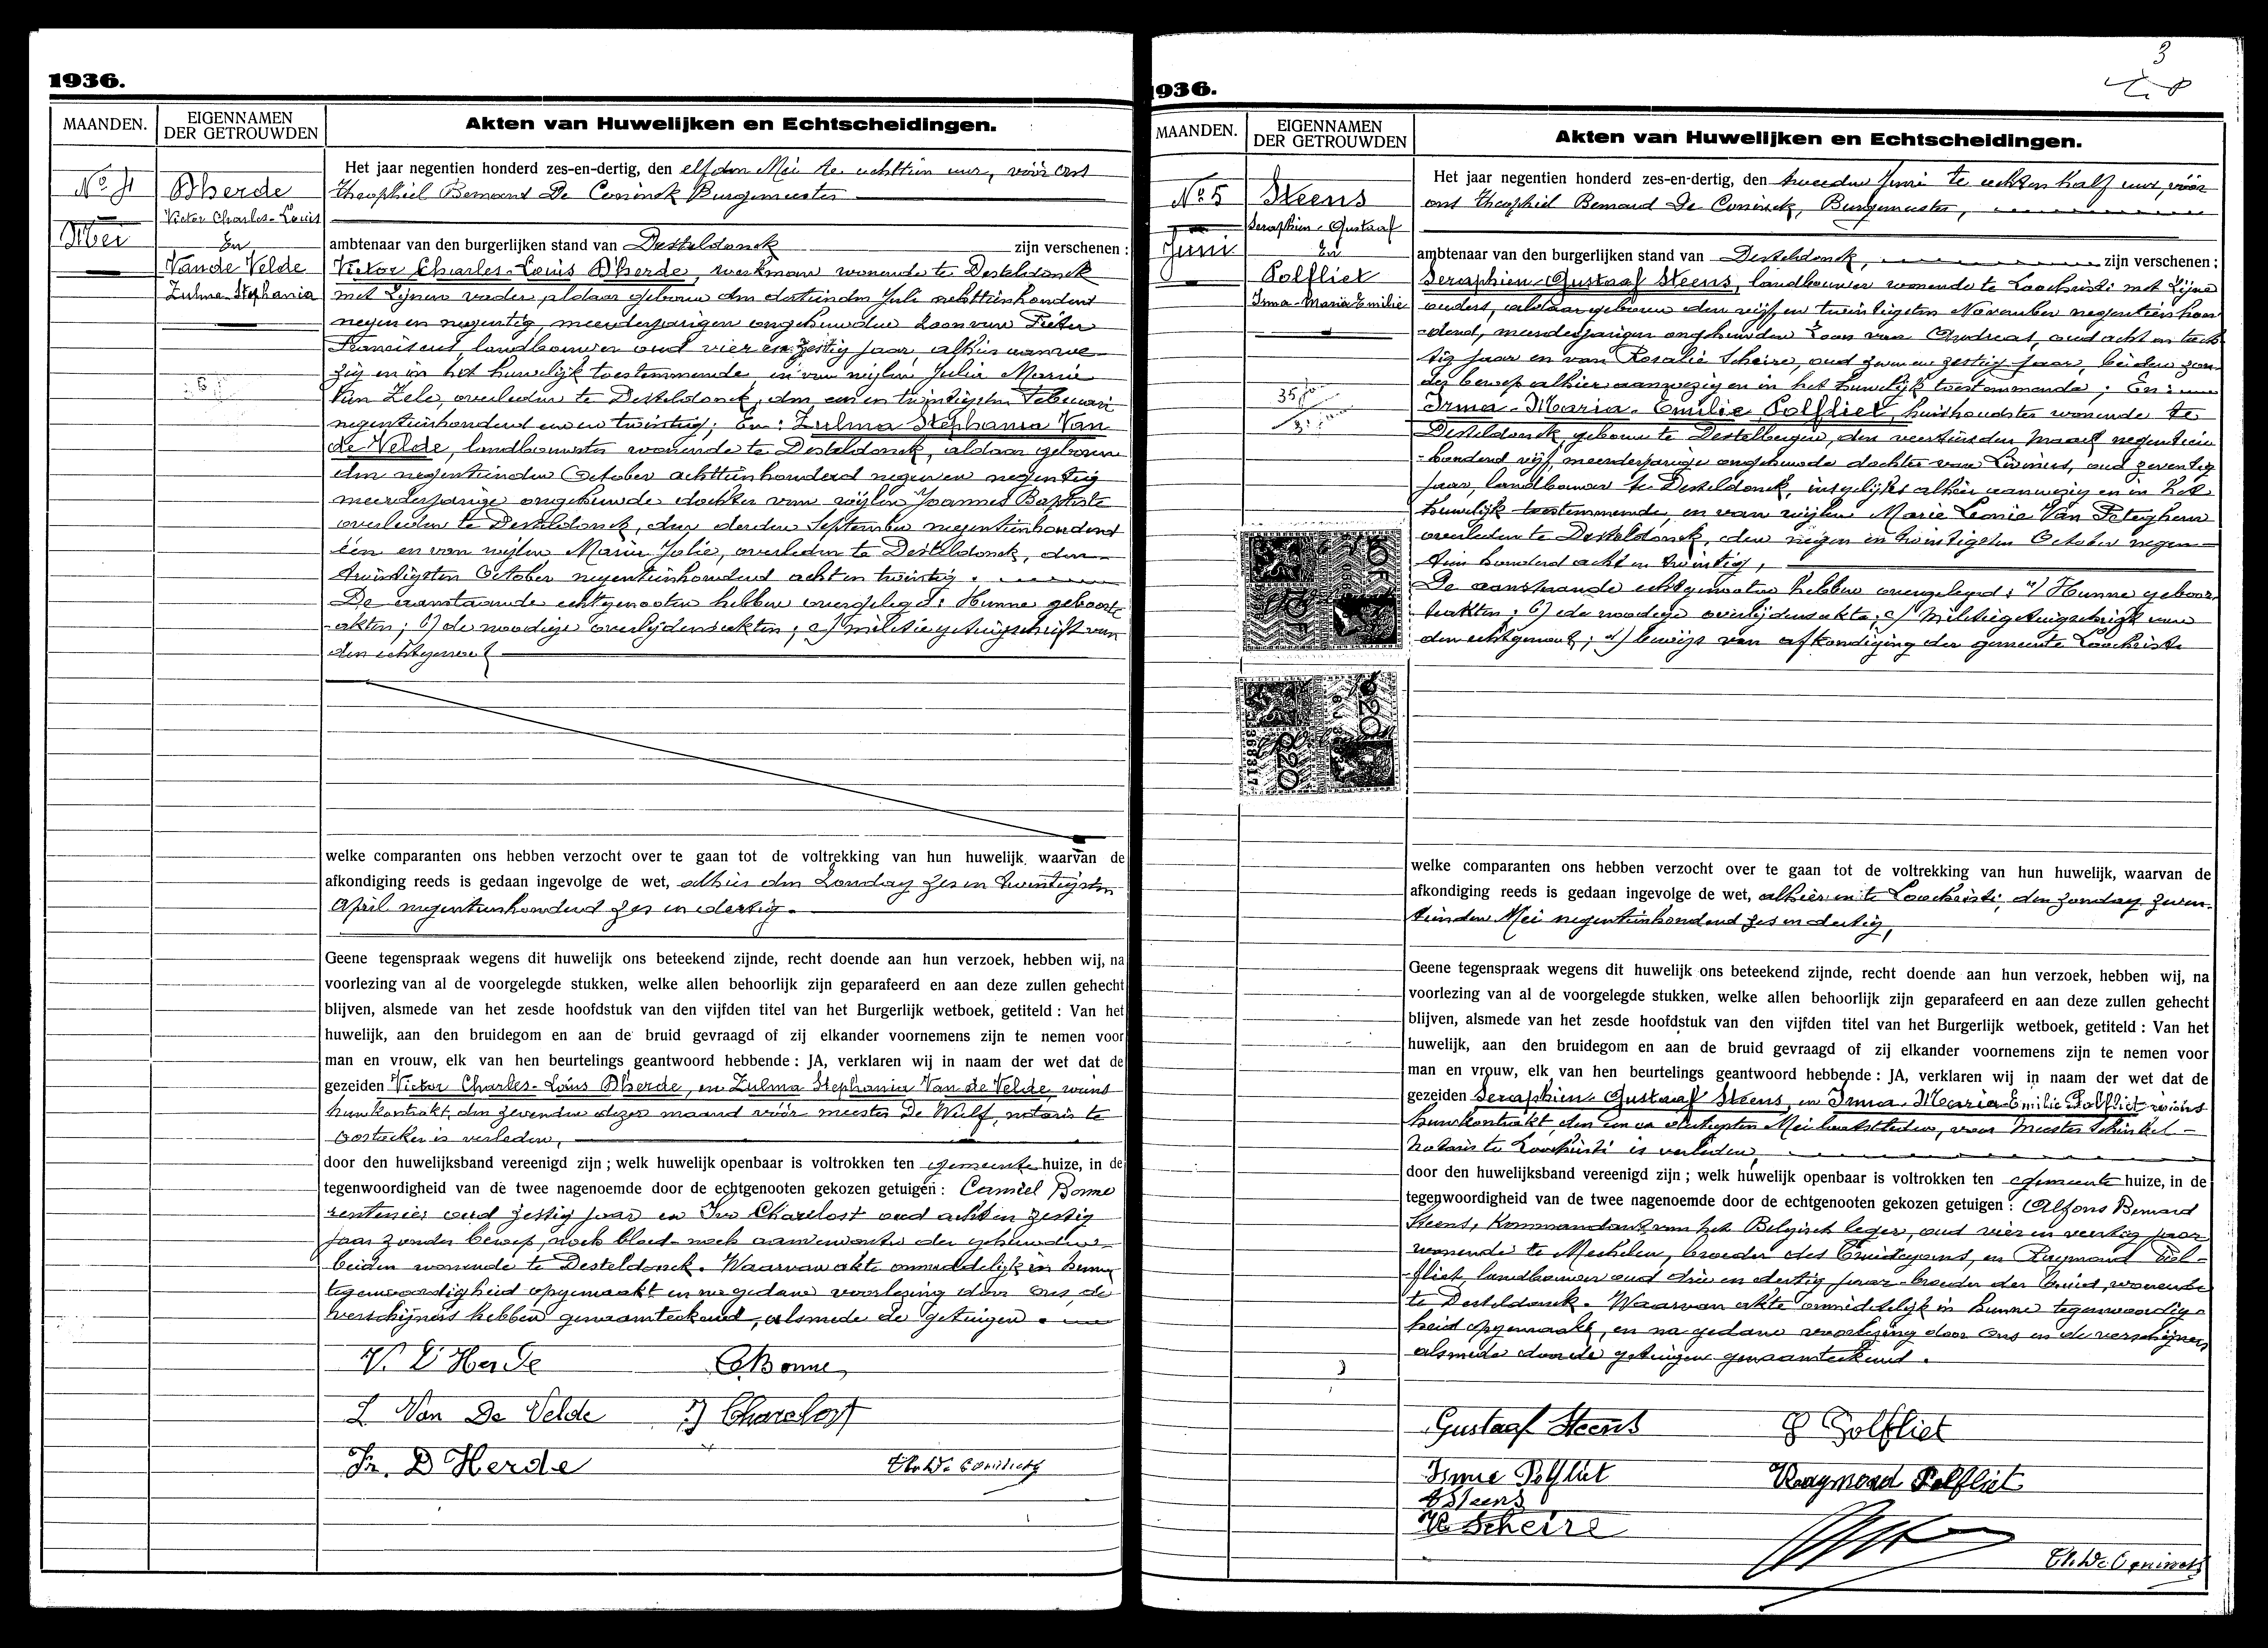 1936.
MAANDEN.
EIGENNAMEN
DER GETROUWDEN
Akten van Huwelijken en Echtscheidingen.
No 4
Mei
D'herde
Victor Charles-Louis
En
Van de Velde
Zulma Stephania
Het jaar negentien honderd zes-en-dertig, den elfden Mei te achttien uur, vóór ons
Theophiel Bernard De Coninck Burgemeester
ambtenaar van den burgerlijken stand van Desteldonck zijn verschenen :
Victor Charles-Louis D'herde, werkman wonende te Desteldonck
met zijnen vader, aldaar geboren den dertienden Juli achttienhonderd
negen en negentig, meerderjarigen ongehuwden zoon van Pieter
Franciscus, landbouwer oud vier en zestig jaar, alhier aanwe-
zig en in het huwelijk toestemmende, en van wijlen Julia Marie
Van Zele, overleden te Desteldonck, den een en twintigsten Februari
negentienhonderd en twintig; En: Zulma Stephania Van
de Velde, landbouwster wonende te Desteldonck, aldaar geboren
den negentienden October achttienhonderd negen en negentig
meerderjarige ongehuwde dochter van wijlen Joannes Baptiste
overleden te Desteldonck, den derden September negentienhonderd
één en van wijlen Marie Jolie, overleden te Desteldonck, den
twintigsten October negentienhonderd acht en twintig.
De aanstaande echtgenooten hebben overgelegd: Hunne geboorte-
-akten; b) de noodige overlijdensakten; c) militiegetuigschrift van
den echtgenoot
welke comparanten ons hebben verzocht over te gaan tot de voltrekking van hun huwelijk, waarvan de
afkondiging reeds is gedaan ingevolge de wet, alhier den Zondag zes en twintigsten
April negentienhonderd zes en dertig.
Geene tegenspraak wegens dit huwelijk ons beteekend zijnde, recht doende aan hun verzoek, hebben wij, na
voorlezing van al de voorgelegde stukken, welke allen behoorlijk zijn geparafeerd en aan deze zullen gehecht
blijven, alsmede van het zesde hoofdstuk van den vijfden titel van het Burgerlijk wetboek, getiteld : Van het
huwelijk, aan den bruidegom en aan de bruid gevraagd of zij elkander voornemens zijn te nemen voor
man en vrouw, elk van hen beurtelings geantwoord hebbende : JA, verklaren wij in naam der wet dat de
gezeiden Victor Charles-Louis D'herde, en Zulma Stephania Van de Velde, wiens
huwkontrakt, den zevenden dezer maand vóór meester De Wulf, notaris te
Oostacker is verleden,
door den huwelijksband vereenigd zijn ; welk huwelijk openbaar is voltrokken ten gemeente huize, in de
tegenwoordigheid van de twee nagenoemde door de echtgenooten gekozen getuigen : Camiel Bonne
rentenier oud zestig jaar en Ivo Charelost oud acht en zestig
jaar zonder beroep, noch bloed- noch aanverwanten der gehuwden
beiden wonende te Desteldonck. Waarvan akte onmiddelijk in hunne
tegenwoordigheid opgemaakt en na gedane voorlezing door ons, de
verschijners hebben genaamteekend, alsmede de getuigen.
V. D'Herde
C. Bonne
Z Van De Velde
J Charelost
Fr. D'Herde
Th. De Coninck
3
1936.
MAANDEN.
EIGENNAMEN
DER GETROUWDEN
Akten van Huwelijken en Echtscheidingen.
No 5
Juni
Steens
Seraphien-Gustaaf
En
Polfliet
Irma-Maria-Emilie
35
Het jaar negentien honderd zes-en-dertig, den tweeden Juni te achten half uur, vóór
ons Theophiel Bernard De Coninck, Burgemeester,
ambtenaar van den burgerlijken stand van Desteldonck, zijn verschenen :
Seraphien-Gustaaf Steens, landbouwer wonende te Loochristi met zijne
ouders, aldaar geboren den vijf en twintigsten November negentienhon-
-derd, meerderjarigen ongehuwden zoon van Andreas, oud acht en tach-
tig jaar en van Rosalie Scheire, oud zeven en zestig jaar, beiden zon-
der beroep alhier aanwezig en in het huwelijk toestemmende; En:
Irma-Maria-Emilie Polfliet, huishoudster wonende te
Desteldonck, geboren te Destelbergen, den veertienden Maart negentien
-honderd vijf, meerderjarige ongehuwde dochter van Livinus, oud zeventig
jaar, landbouwer te Desteldonck, insgelijks alhier aanwezig en in het
huwelijk toestemmende, en van wijlen Marie Leonie Van Peteghem
overleden te Desteldonck, den negen en twintigsten October negen-
tien honderd acht en twintig,
De aanstaande echtgenooten hebben overgelegd: a) Hunne geboor-
teakten; b) de noodige overlijdensakte; c) Militiegetuigschrift van
den echtgenoot; d) bewijs van afkondiging der gemeente Loochristi
welke comparanten ons hebben verzocht over te gaan tot de voltrekking van hun huwelijk, waarvan de
afkondiging reeds is gedaan ingevolge de wet, alhier en te Loochristi, den zondag zeven-
tienden Mei negentienhonderd zes en dertig,
Geene tegenspraak wegens dit huwelijk ons beteekend zijnde, recht doende aan hun verzoek, hebben wij, na
voorlezing van al de voorgelegde stukken, welke allen behoorlijk zijn geparafeerd en aan deze zullen gehecht
blijven, alsmede van het zesde hoofdstuk van den vijfden titel van het Burgerlijk wetboek, getiteld : Van het
huwelijk, aan den bruidegom en aan de bruid gevraagd of zij elkander voornemens zijn te nemen voor
man en vrouw, elk van hen beurtelings geantwoord hebbende : JA, verklaren wij in naam der wet dat de
gezeiden Seraphien-Gustaaf Steens, en Irma-Maria-Emilie Polfliet wiens
huwkontrakt, den een en dertigsten Mei laatstleden, voor Meester Schinkel-
Notaris te Loochristi is verleden,
door den huwelijksband vereenigd zijn ; welk huwelijk openbaar is voltrokken ten gemeente huize, in de
tegenwoordigheid van de twee nagenoemde door de echtgenooten gekozen getuigen : Alfons Bernard
Steens, Kommandant van het Belgisch leger, oud vier en veertig jaar
wonende te Mechelen, broeder des bruidegoms, en Raymond Pol-
-fliet, landbouwer oud drie en dertig jaar broeder der bruid, wonende
te Desteldonck. Waarvan akte onmiddelijk in hunne tegenwoordig-
heid opgemaakt, en na gedane voorlezing door ons en de verschijners
alsmede door de getuigen genaamteekend.
Gustaaf Steens
Polfliet
Irma Polfliet
Raymond Polfliet
A Steens
R Scheire
Th. De Coninck